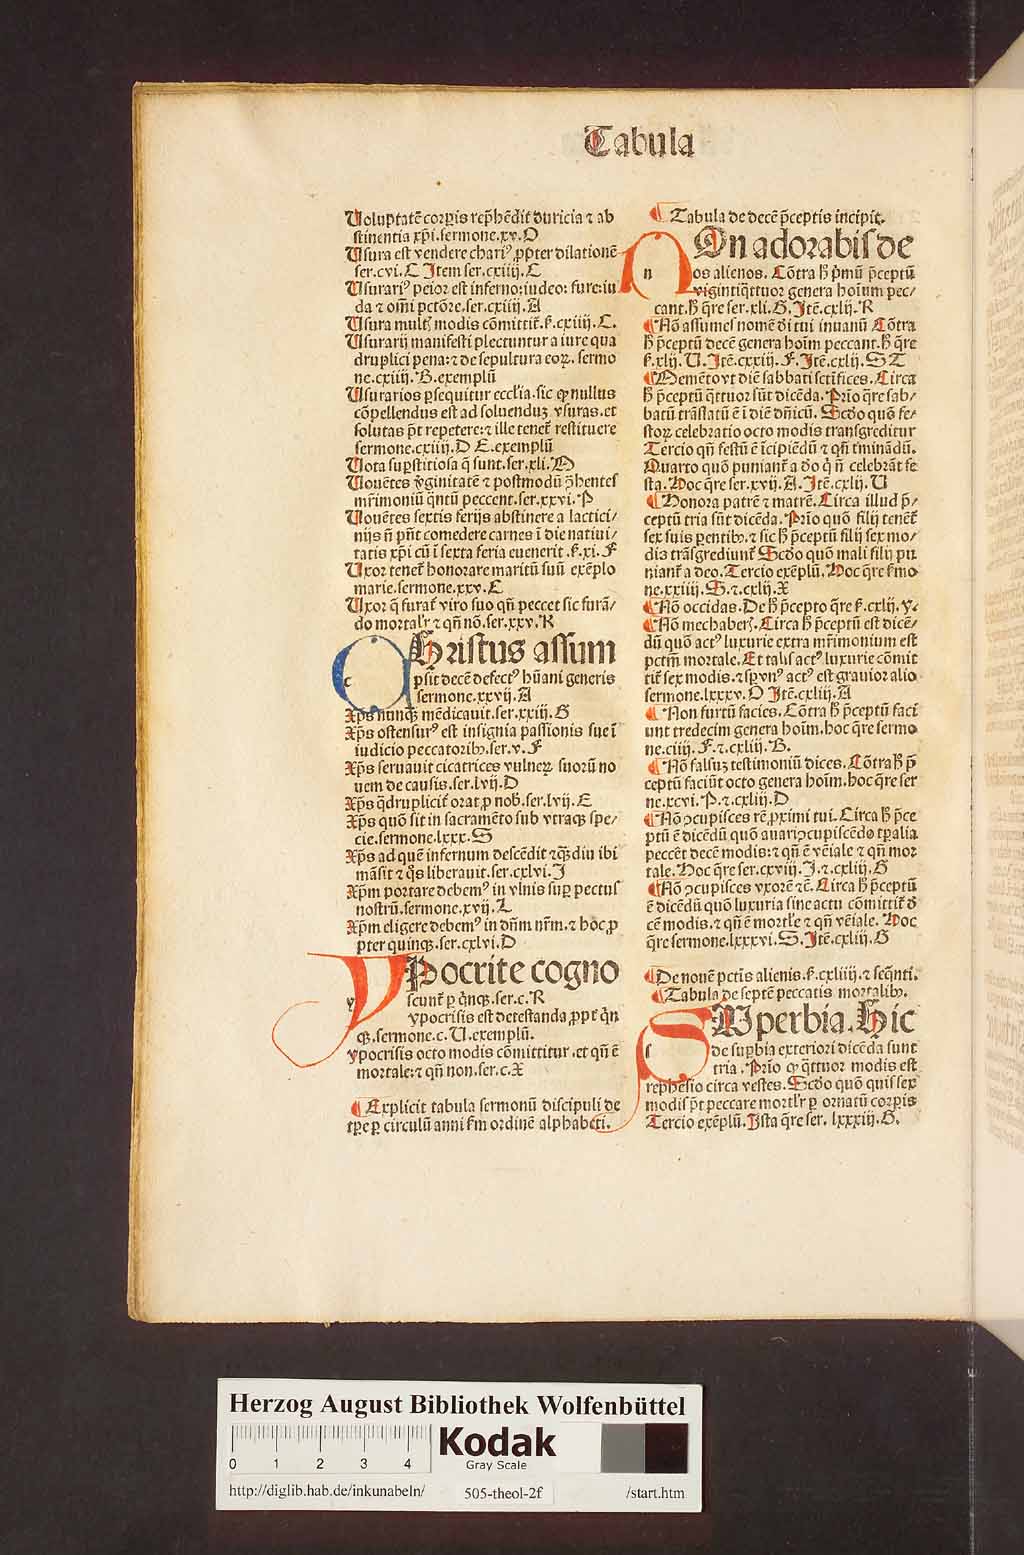 Tabula
Voluptatē corꝑis rep̄hēdit duricia ⁊ ab
stinentia xp̄i.sermone.xv.O
Vsura est vendere chariꝰ ꝓpter dilationē
ser.cvi.C Item ser.cxiiij.C
Vsurariꝰ peior est inferno:iudeo: fure:iu
da ⁊ om̄i pctōre.ser.cxiiij.A
Vsura multꝭ modis cōmittit̄.ẜ.cxiiij.C.
Vsurarij manifesti plectuntur a iure qua
druplici pena:⁊ de sepultura eoꝝ. sermo
ne.cxiiij.B.exemplū
Vsurarios ꝑsequitur eccl'ia.sic ꝙ nullus
cōpellendus est ad soluenduꝫ vsuras.et
solutas p̄t repetere:⁊ ille tenet̄ restituere
sermone.cxiiij.D E.exemplū
Vota suꝑstitiosa q̄ sunt.ser.xli.M
Vouētes v̄ginitatē ⁊ postmodū ꝯ̄hentes
mr̄imoniū q̄ntū peccent.ser.xxvi.P
Vouētes sextis ferijs abstinere a lactici/
nijs n̄ pn̄t comedere carnes ī die natiui/
tatis xp̄i cū ī sexta feria euenerit.ẜ.xi.F
Vxor tenet̄ honorare maritū suū exēplo
marie.sermone.xxv.C
Vxor q̄ furat̄ viro suo qn̄ peccet sic furā/
do mortal'r ⁊ qn̄ nō.ser.xxv.R
c Hristus assum
psit decē defectꝰ hūani generis
sermone.xxvij.A
Xp̄s nunqꝫ medicauit.ser.xxiij.G
Xp̄s ostensurꝰ est insignia passionis sue ī
iudicio peccatoribꝫ.ser.v.F
Xp̄s seruauit cicatrices vulneꝝ suorū no
uem de causis.ser.lvij.D
Xp̄s q̄druplicit̄ orat ꝓ nob.ser.lvij.E
Xp̄s quō sit in sacramēto sub vtraqꝫ spe/
cie.sermone.lxxx.S
Xp̄s ad quē infernum descēdit ⁊qꝫdiu ibi
māsit ⁊ q̄s liberauit.ser.cxlvi.I
Xp̄m portare debemꝰ in vlnis suꝑ pectus
nostrū.sermone.xvij.L
Xp̄m eligere debemꝰ in dn̄m nr̄m.⁊ hoc ꝓ
pter quinqꝫ.ser.cxlvi.D
y Pocrite cogno
scunt̄ ꝑ q̄nqꝫ.ser.c.R
ypocrisis est detestanda ꝓpt̄ q̄n
qꝫ.sermone.c.V.exemplū.
ypocrisis octo modis cōmittitur.et qn̄ ē
mortale:⁊ qn̄ non.ser.c.X
¶ Explicit tabula sermonū discipuli de
tp̄e ꝑ circulū anni ẜm ordinē alphabeti.
¶ Tabula de decē p̄ceptis incipit.
n On adorabis de
os alienos. Cōtra h̄ p̄mū p̄ceptū
vigintiq̄ttuor genera hoīum pec/
cant.h̄ q̄re ser.xli.G.Itē.cxlij.R
¶Nō assumes nomē dī tui inuanū Cōtra
h̄ p̄ceptū decē genera hoīm peccant.h̄ q̄re
ẜ.xlij.V.Itē.cxxiij.F.Itē.cxlij.S T
¶Memēto vt diē sabbati sctīfices.Circa
h̄ p̄ceptū q̄ttuor sūt dicēda.Prīo q̄re sab/
batū trāstatū ē ī diē dn̄icū. Scdo quō fe/
stoꝝ celebratio octo modis transgreditur
Tercio qn̄ festū ē īcipiēdū ⁊ qn̄ t̄minādū.
Quarto quō puniant̄ a deo q̄ n̄ celebrāt fe
sta.Hoc q̄re ser.xvij.A.Itē.cxlij.V
¶Honora patrē ⁊ matrē.Circa illud p̄/
ceptū tria sūt dicēda.Prīo quō filij tenēt̄
sex suis ꝑentibꝫ.⁊ sic h̄ p̄ceptū filij sex mo/
dis trāsgrediunt̄ Scdo quō mali filij pu
niant̄ a deo.Tercio exēplū.Hoc q̄re ẜmo
ne.xxiiij.S.⁊.cxlij.X
¶Nō occidas.De h̄ p̄cepto q̄re ẜ.cxlij.y.
¶Nō mechaberꝭ.Circa h̄ p̄ceptū est dicē/
dū quō actꝰ luxurie extra mr̄imonium est
pctm̄ mortale.Et talis actꝰ luxurie cōmit
tit̄ sex modis.⁊ sꝑ vnꝰ actꝰ est grauior alio
sermone.lxxxv.O Itē.cxliij.A
¶ Non furtū facies.Cōtra h̄ p̄ceptū faci
unt tredecim genera hoīm.hoc q̄re sermo
ne.ciiij.F.⁊.cxliij.B.
¶Nō falsuꝫ testimoniū dices.Cōtra h̄ p̄
ceptū faciūt octo genera hoīm.hoc q̄re ser
ne.xcvi.P.⁊.cxliij.D
¶Nō ꝯcupisces rē ꝓximi tui.Circa h̄ p̄ce
ptū ē dicēdū quō auari ꝯcupiscēdo tp̄alia
peccēt decē modis:⁊ qn̄ ē vēiale ⁊ qn̄ mor
tale.Hoc q̄re ser.cxviij.I.⁊.cxliij.G
¶Nō ꝯcupisces vxorē ⁊ē.Circa h̄ p̄ceptū
ē dicēdū quō luxuria sine actu cōmittit̄ de
cē modis.⁊ qn̄ ē mortl'e ⁊ qn̄ vēiale. Hoc
q̄re sermone.lxxxvi.S.Itē.cxliij.G
¶De nonē pctīs alienis.ẜ.cxliiij.⁊ seq̄nti.
¶Tabula de septē peccatis mortalibꝫ.
s Uperbia.Hic
de suꝑbia exteriori dicēda sunt
tria.Prīo ꝙ q̄ttuor modis est
rephēsio circa vestes.Scdo quō quis sex
modis p̄t peccare mortl'r ꝑ ornatū corꝑis
Tercio exēplū.Ista q̄re ser. lxxxiij.G.
Herzog August Bibliothek Wolfenbüttel
0 1 2 3 4
Kodak
Gray Scale
http://diglib.hab.de/inkunabeln/ 505-theol-2f /start.htm